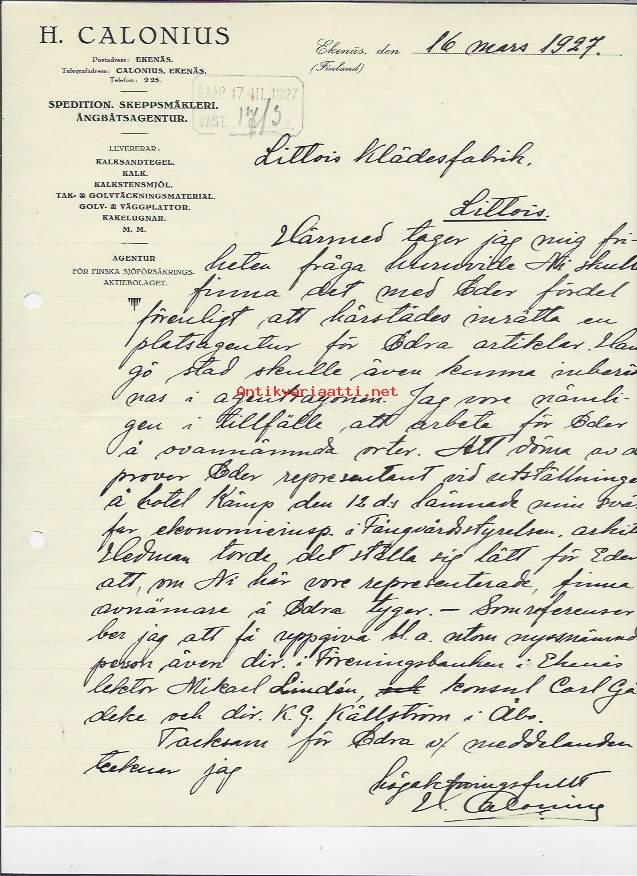 H. CALONIUS
Postadress: EKENÄS.
Telegrafadress: CALONIUS, EKENÄS.
Telefon: 225.
SPEDITION. SKEPPSMÄKLERI.
ÅNGBÅTSAGENTUR.
LEVERERAR:
KALKSANDTEGEL.
KALK.
KALKSTENSMJÖL.
TAK- & GOLVTÄCKNINGSMATERIAL.
GOLV- & VÄGGPLATTOR.
KAKELUGNAR.
M. M.
AGENTUR
FÖR FINSKA SJÖFÖRSÄKRINGS-
AKTIEBOLAGET.
Ekenäs, den 16 mars 1927.
(Finland)
SAAP. 17. III. 1927
VAST. 17/3
Littois Klädesfabrik.
Littois.
Härmed tager jag mig fri-
heten fråga huruvida Ni skull
finna det med Eder fördel
förenligt att härstädes inrätta en
platsagentur för Edra artiklar. Han
gö stad skulle även kunna inberä
nas i agentragonen. Jag vore nämli-
gen i tillfälle att arbeta för Eder
å ovannämnda orter. Att döma av d
prover Eder representant vid utställninge
å hotel Kämp den 12 d:s lämnade min svå
far ekonomieinsp. i Fångvårdsstyrelsen, arkit
Hedman torde det ställa sig lätt för Eder
att, om Ni här vore representerade, finna
avnämare å Edra tyger. – Som referenser
ber jag att få uppgiva bl. a. utom nyssnämnd
person även dir. i Föreningsbanken i Ekenäs
lektor Mikael Lindén, konsul Carl Gä
deke och dir. K. G. Källström i Åbo.
Tacksam för Edra v/ meddelanden
tecknar jag
högaktningsfullt
H. Calonius
Antikvariaatti.net